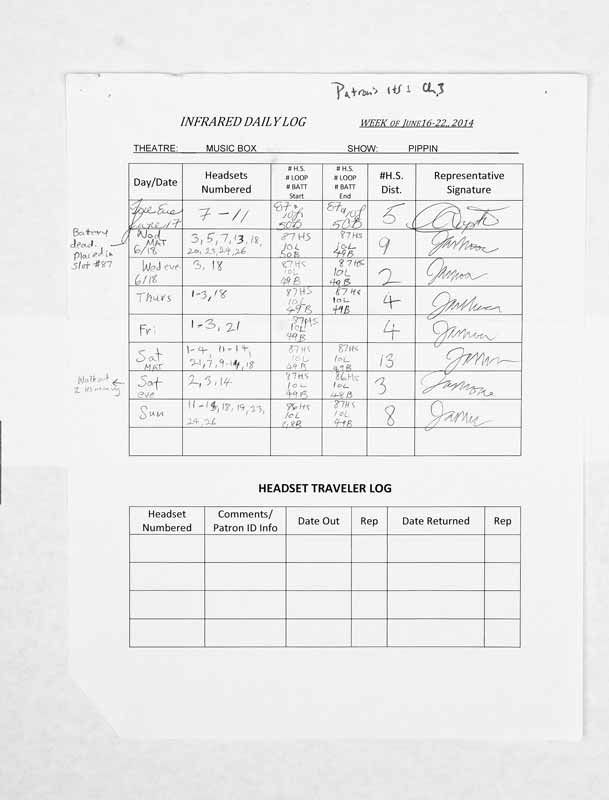 Patron's
INFRARED DAILY LOG WEEK OF JUNE 16-22, 2014
THEATRE: MUSIC BOX SHOW: PIPPIN
Day/Date Headsets Numbered # H.S. # LOOP # BATT Start # H.S. # LOOP # BATT End #H.S. Dist. Representative Signature
Tue Eve June 17 7 - 11 50B 50B 5
Battery dead. Placed in Slot #87
Wed MAT 6/18 3, 5, 7, 13, 18, 20, 23, 24, 26 87HS 10L 50B 87HS 10L 49B 9
Wed eve 6/18 3, 18 87HS 10L 49B 87HS 10L 49B 2
Thurs 1-3, 18 87HS 10L 49B 87HS 10L 49B 4
Fri 1-3, 21 87HS 10L 49B 4
Sat MAT 1-4, 11-14, 21, 7, 9, 18 87HS 10L 49B 87HS 10L 49B 13
Sat eve 2, 3, 14 87HS 10L 49B 86HS 10L 48B 3
Sun 18, 19, 23, 24, 26 86HS 10L 48B 87HS 10L 49B 8
HEADSET TRAVELER LOG
Headset Numbered Comments/ Patron ID Info Date Out Rep Date Returned Rep